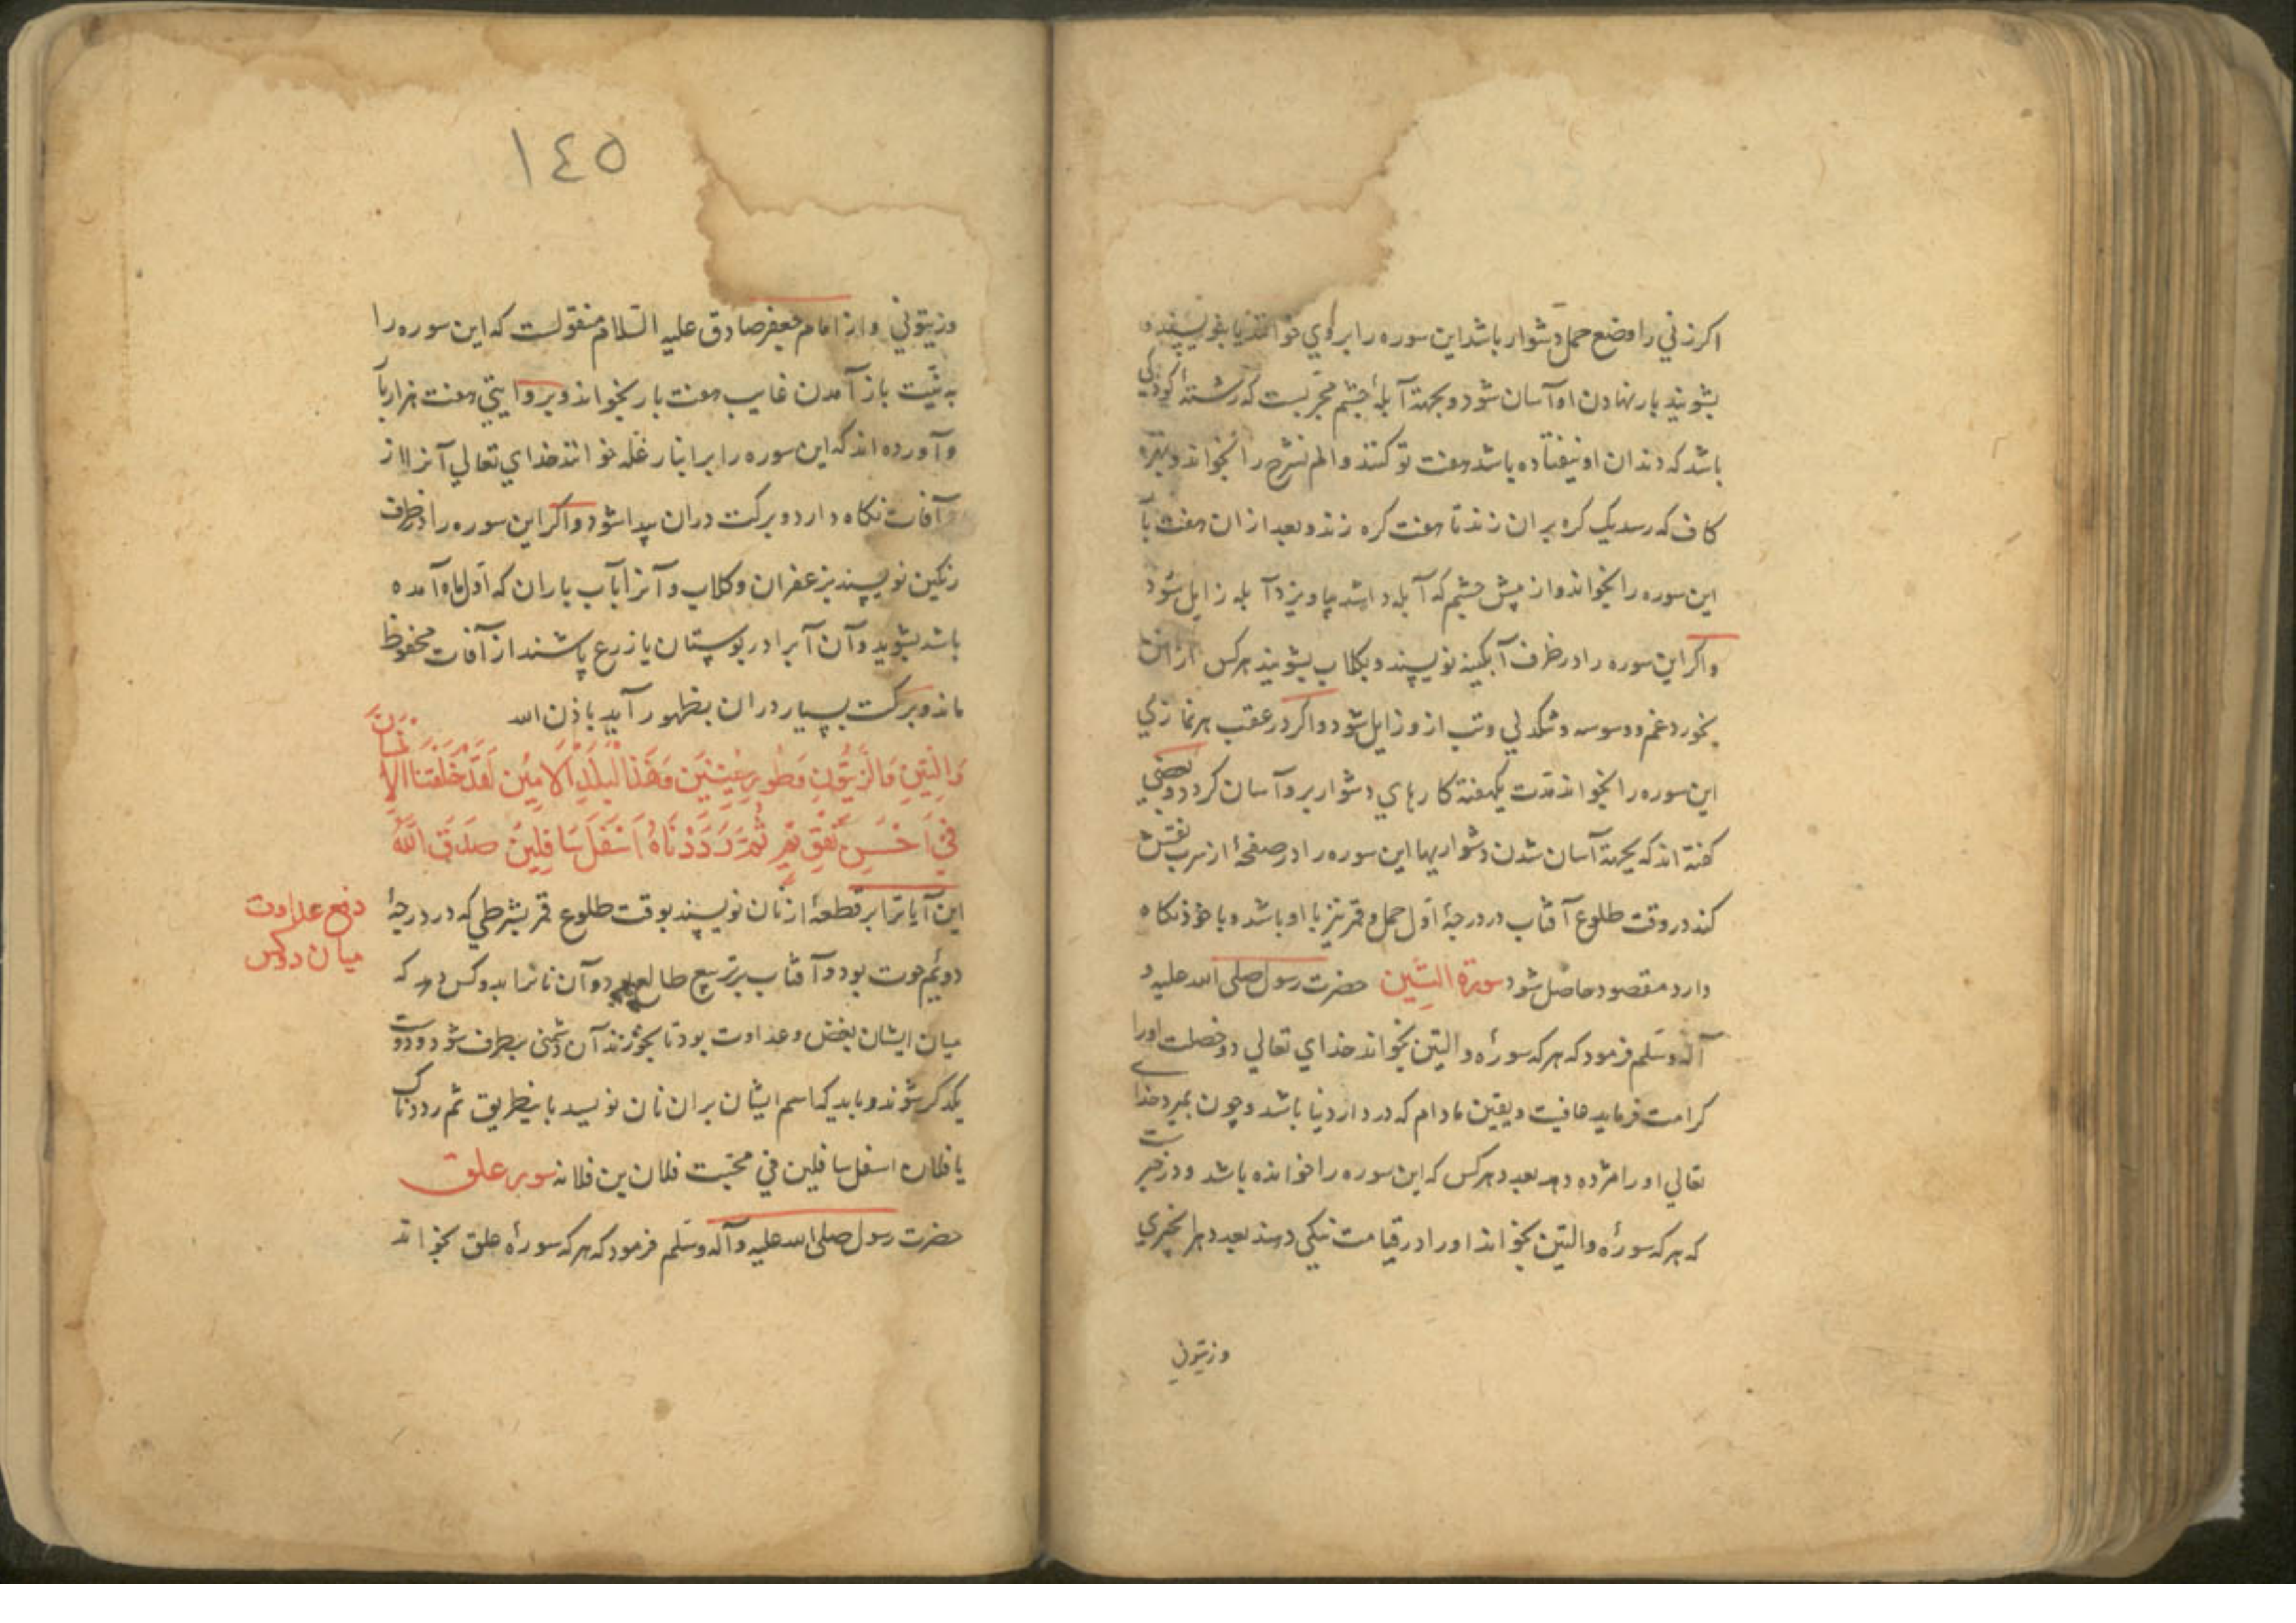 اکر زني را وضع حمل دشوار باشد این سوره را بروي خوانند یا بنویسند و
بشویند بار نهادن او آسان شود و بجهة آبلهٔ چشم مجربست که رشتهٔ کودکي
باشد که دندان او نیفتاده باشد هفت تو کنند و الم نشرح را بخواند و بهر
کاف که رسد یک کره بر ان زند تا هفت کره زند و بعد از ان هفت بار
این سوره را بخواند و از پیش چشم که آبله داشد بیاویزد آبله زایل شود
و اکر این سوره را در ظرف آبکینه نویسند و بکلاب بشویند هر کس از ان
بخورد غم و وسوسه و تنکدلي و تب از و زایل شود و اکر در عقب هر نمازي
این سوره را بخواند مدت یکهفته کارهاي دشوار برو آسان کردد و بعضي
کفته اند که بجهة آسان شدن دشواریها این سوره را در صفحهٔ از سرب نقش
کند در وقت طلوع آفتاب در درجهٔ اول حمل و قمر نیز با او باشد و با خود نکاه
دارد مقصود حاصل شود سورة التین حضرت رسول صلی الله علیه و
آله وسلم فرمود که هر که سورهٔ والتین بخواند خداي تعالي دو خصلت او را
کرامت فرماید عافیت و یقین مادام که در دار دنیا باشد و چون بمیرد خداي
تعالي او را مژده دهد بعدد هر کس که این سوره را خوانده باشد و در خبرست
که هر که سورهٔ والتین بخواند او را در قیامت نیکي دهند بعدد هر انجیري
و زیتوني
١٤٥
و زیتوني و از امام جعفر صادق علیه السلام منقولست که این سوره را
به نیت باز آمدن غایب هفت بار بخواند و بروایتي هفت هزار بار
و آورده اند که این سوره را بر انبار غله خوانند خداي تعالي آنرا از
آفات نکاه دارد و برکت دران پیدا شود و اکر این سوره را در ظرف
رنکین نویسند بزعفران و کلاب و آنرا بآب باران که اول ماه آمده
باشد بشوید و آن آبرا در بوستان یا زرع پاشند از آفات محفوظ
ماند و برکت بسیار دران بظهور آید باذن الله
وَالتِّينِ وَالزَّيْتُونِ وَطُورِ سِينِينَ وَهَذَا الْبَلَدِ الْأَمِينِ لَقَدْ خَلَقْنَا الْإِنْسَانَ
فِي أَحْسَنِ تَقْوِيمٍ ثُمَّ رَدَدْنَاهُ أَسْفَلَ سَافِلِينَ صَدَقَ اللَّهُ
این آیاترا بر قطعهٔ از نان نویسند بوقت طلوع قمر بشرطي که در درجهٔ
دفع عداوت
میان دو کس
دوئیم حوت بود و آفتاب بر تربیع طالع بود و آن نانرا بدو کس دهد که
میان ایشان بغض و عداوت بود تا بخورند آن دشمنی بطرف شود و دوست
یکدکر شوند و باید که اسم ایشان بران نان نویسد باینطریق ثم رددناک
یا فلان اسفل سافلین في محبت فلان بن فلانه سوره علق
حضرت رسول صلی الله علیه و آله وسلم فرمود که هر که سورهٔ علق بخواند